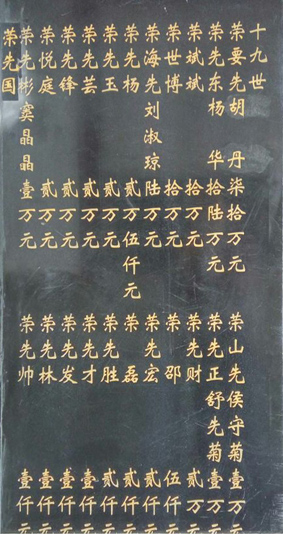 十九世
荣要先胡 丹柒拾万元 荣山先侯守菊壹万元
荣先东杨 华拾陆万元 荣先正舒先菊壹万元
荣斌斌 拾万元 荣先财 贰万元
荣世博 拾万元 荣 邵 伍仟元
荣海先刘淑琼陆万元 荣先宏 贰仟元
荣先杨 贰万伍仟元 荣 磊 贰仟元
荣先玉 贰万元 荣先胜 贰仟元
荣先芸 贰万元 荣先才 壹仟元
荣先锋 贰万元 荣先发 壹仟元
荣悦庭 贰万元 荣先林 壹仟元
荣先彬窦晶晶壹万元 荣先帅 壹仟元
荣先国